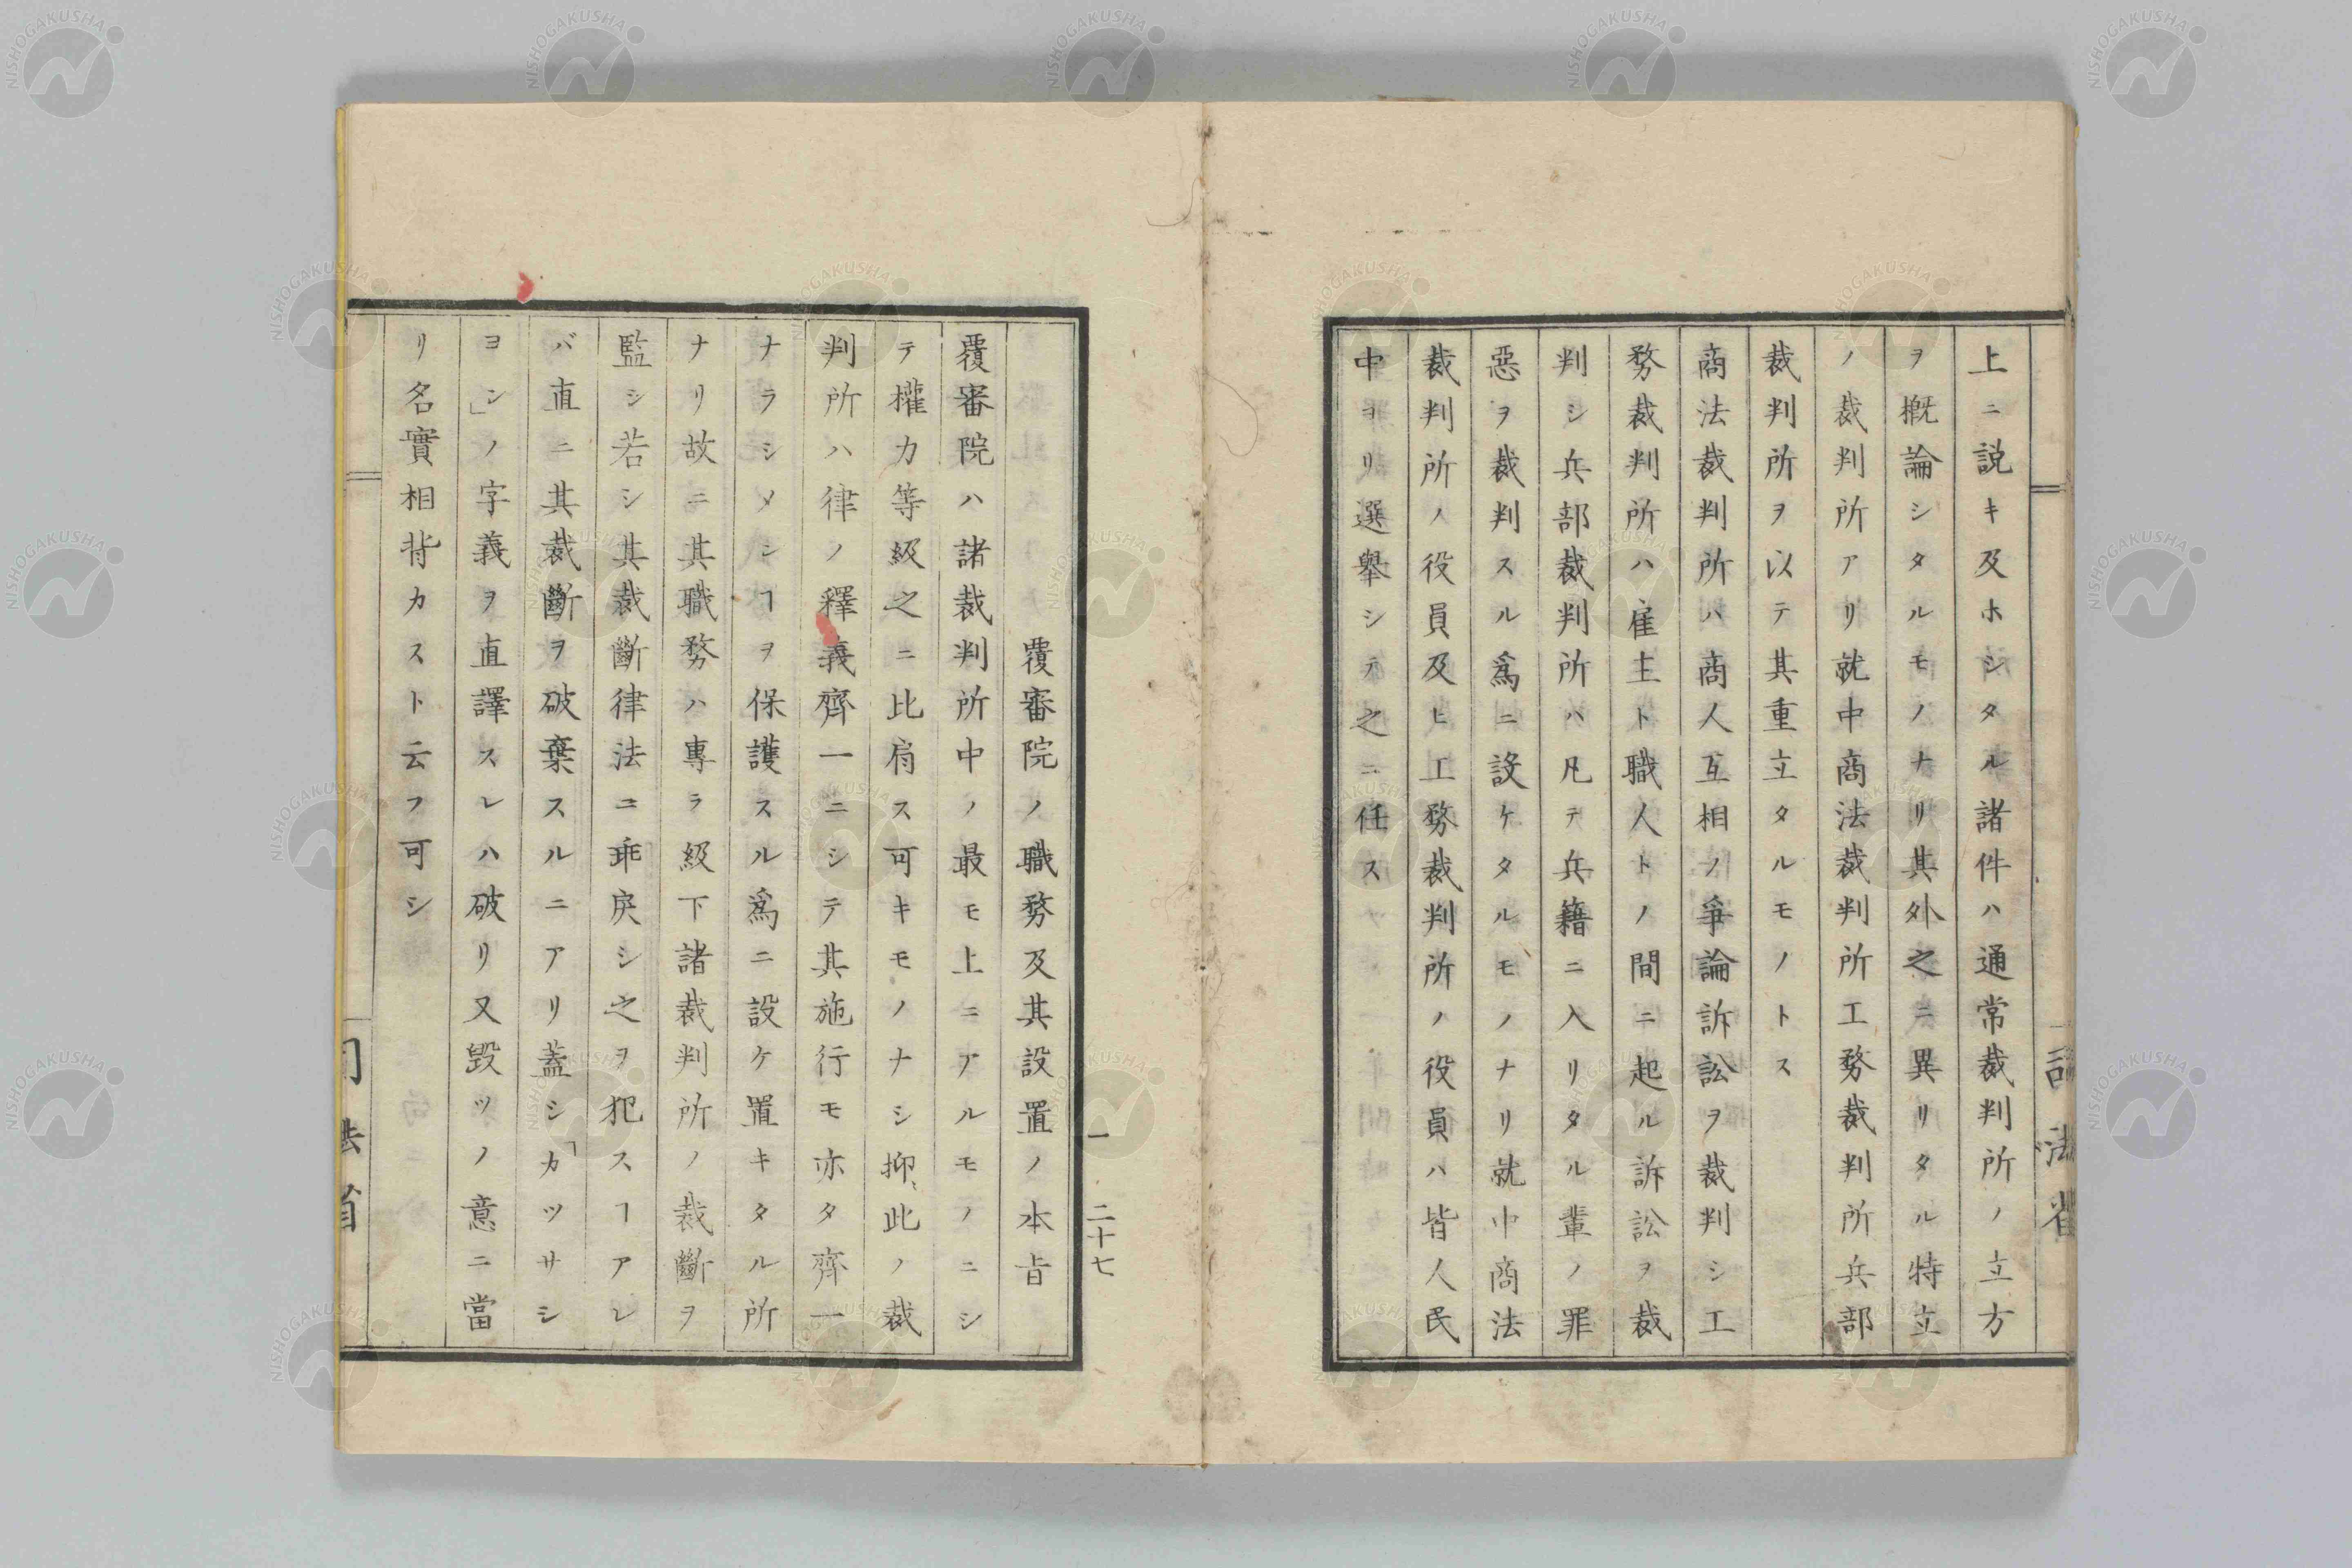 上ニ説キ及ホシタル諸件ハ通常裁判所ノ立方
ヲ概論シタルモノナリ其外之ニ異リタル特立
ノ裁判所アリ就中商法裁判所工務裁判所兵部
裁判所ヲ以テ其重立タルモノトス
商法裁判所ハ商人互相ノ爭論訴訟ヲ裁判シ工
務裁判所ハ雇主ト職人トノ間ニ起ル訴訟ヲ裁
判シ兵部裁判所ハ凡テ兵籍ニ入リタル輩ノ罪
惡ヲ裁判スル爲ニ設ケタルモノナリ就中商法
裁判所ノ役員及ヒ工務裁判所ノ役員ハ皆人民
中ヨリ選擧シテ之ニ任ス
一 二十七
覆審院ノ職務及其設置ノ本旨
覆審院ハ諸裁判所中ノ最モ上ニアルモノニシ
テ權力等級之ニ比肩ス可キモノナシ抑此ノ裁
判所ハ律ノ釋義齊一ニシテ其施行モ亦タ齊一
ナラシメンヿヲ保護スル爲ニ設ケ置キタル所
ナリ故ニ其職務ハ專ラ級下諸裁判所ノ裁斷ヲ
監シ若シ其裁斷律法ニ乖戾シ之ヲ犯スヿアレ
バ直ニ其裁斷ヲ破棄スルニアリ蓋シ「カツサシ
ヨン」ノ字義ヲ直譯スレハ破リ又毀ツノ意ニ當
リ名實相背カスト云フ可シ
司法省
NISHOGAKUSHA